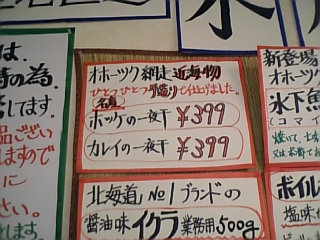 は.
の為.
します.
品ござい
ますので
に
さい。
オホーツク網走近海物
ひとつひとつ手造りで仕上げました。
名産
ホッケの一夜干 ¥399
カレイの一夜干 ¥399
北海道No1ブランドの
醤油味イクラ業務用500g
新登場
オホーツ
氷下魚
(コマイ
ボイル
塩味